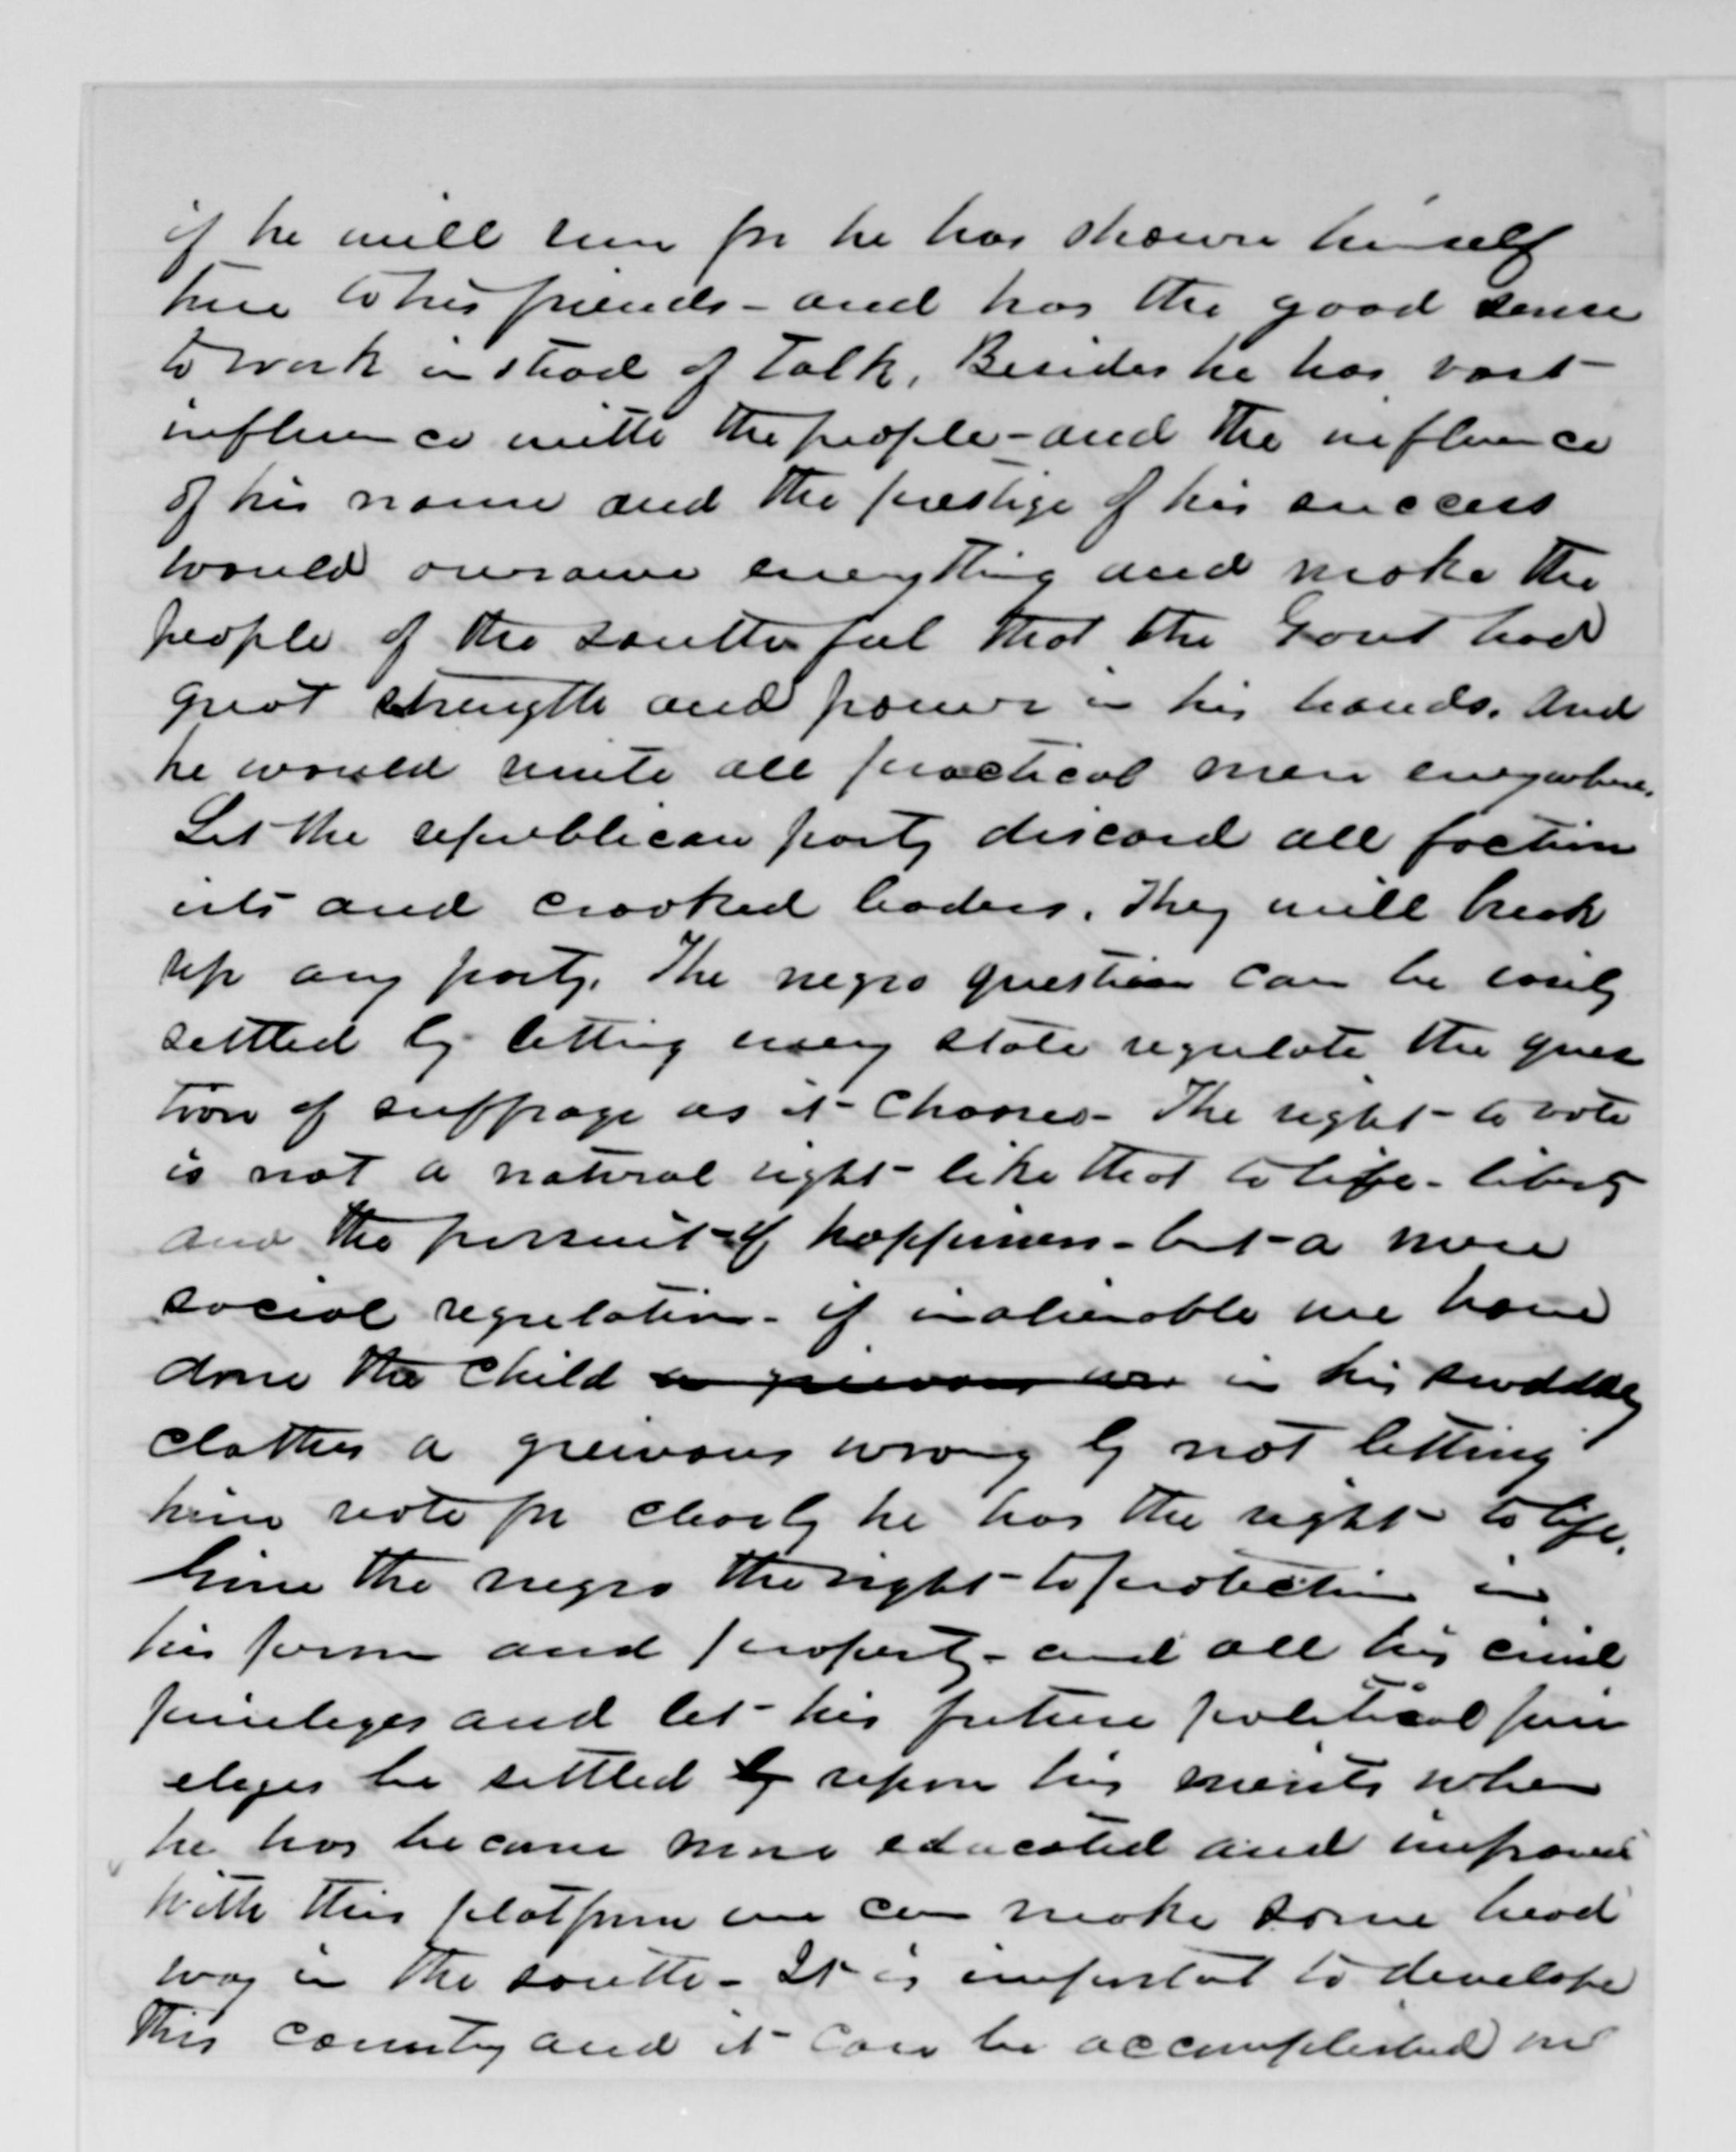 if he will run for he has shown himself
true to his friends - and has the good sense
to work in stead of talk. Besides he has vast
influence with the people - and the influence
of his name and the prestige of his success
would overawe everything and make the
people of the south feel that the Govt had
great strength and power in his hands. And
he would unite all practical men everywhere.
Let the republican party discard all faction
ists and crooked leaders. They will break
up any party. The negro question can be easily
settled by letting every state regulate the ques
tion of suffrage as it chooses - The right - to vote
is not a natural right - like that to life - liberty
and the persuit of happiness - but - a mere
social regulation - if inalienable we have
done the child a greivous wro in his swaddling
clothes a greivous wrong by not letting
him vote for clearly he has the right - to life.
Give the negro the right - to protection in
his person and property - and all his civil
privileges and let - his future political priv
eleges be settled by upon his merits when
he has become more educated and improved
With this platform we can make some head
way in the south - It is important to develope
this country and it - can be accomplished in